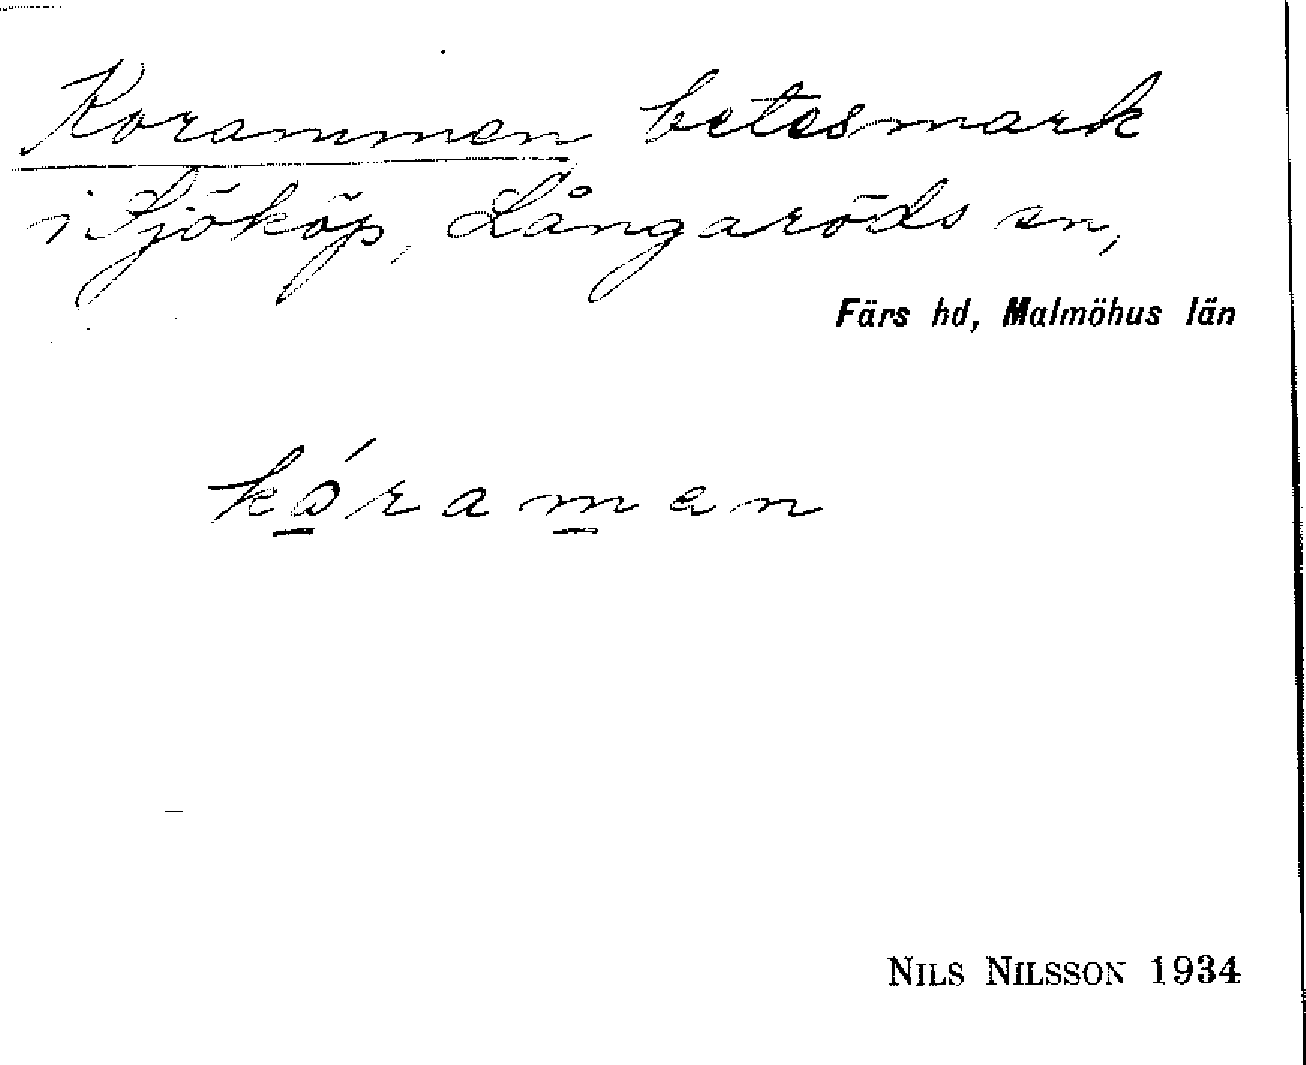 Korammen betesmark
i Sjököp, Långaröds sn,
Färs hd, Malmöhus län
kó̠ram̠en
NILS NILSSON 1934